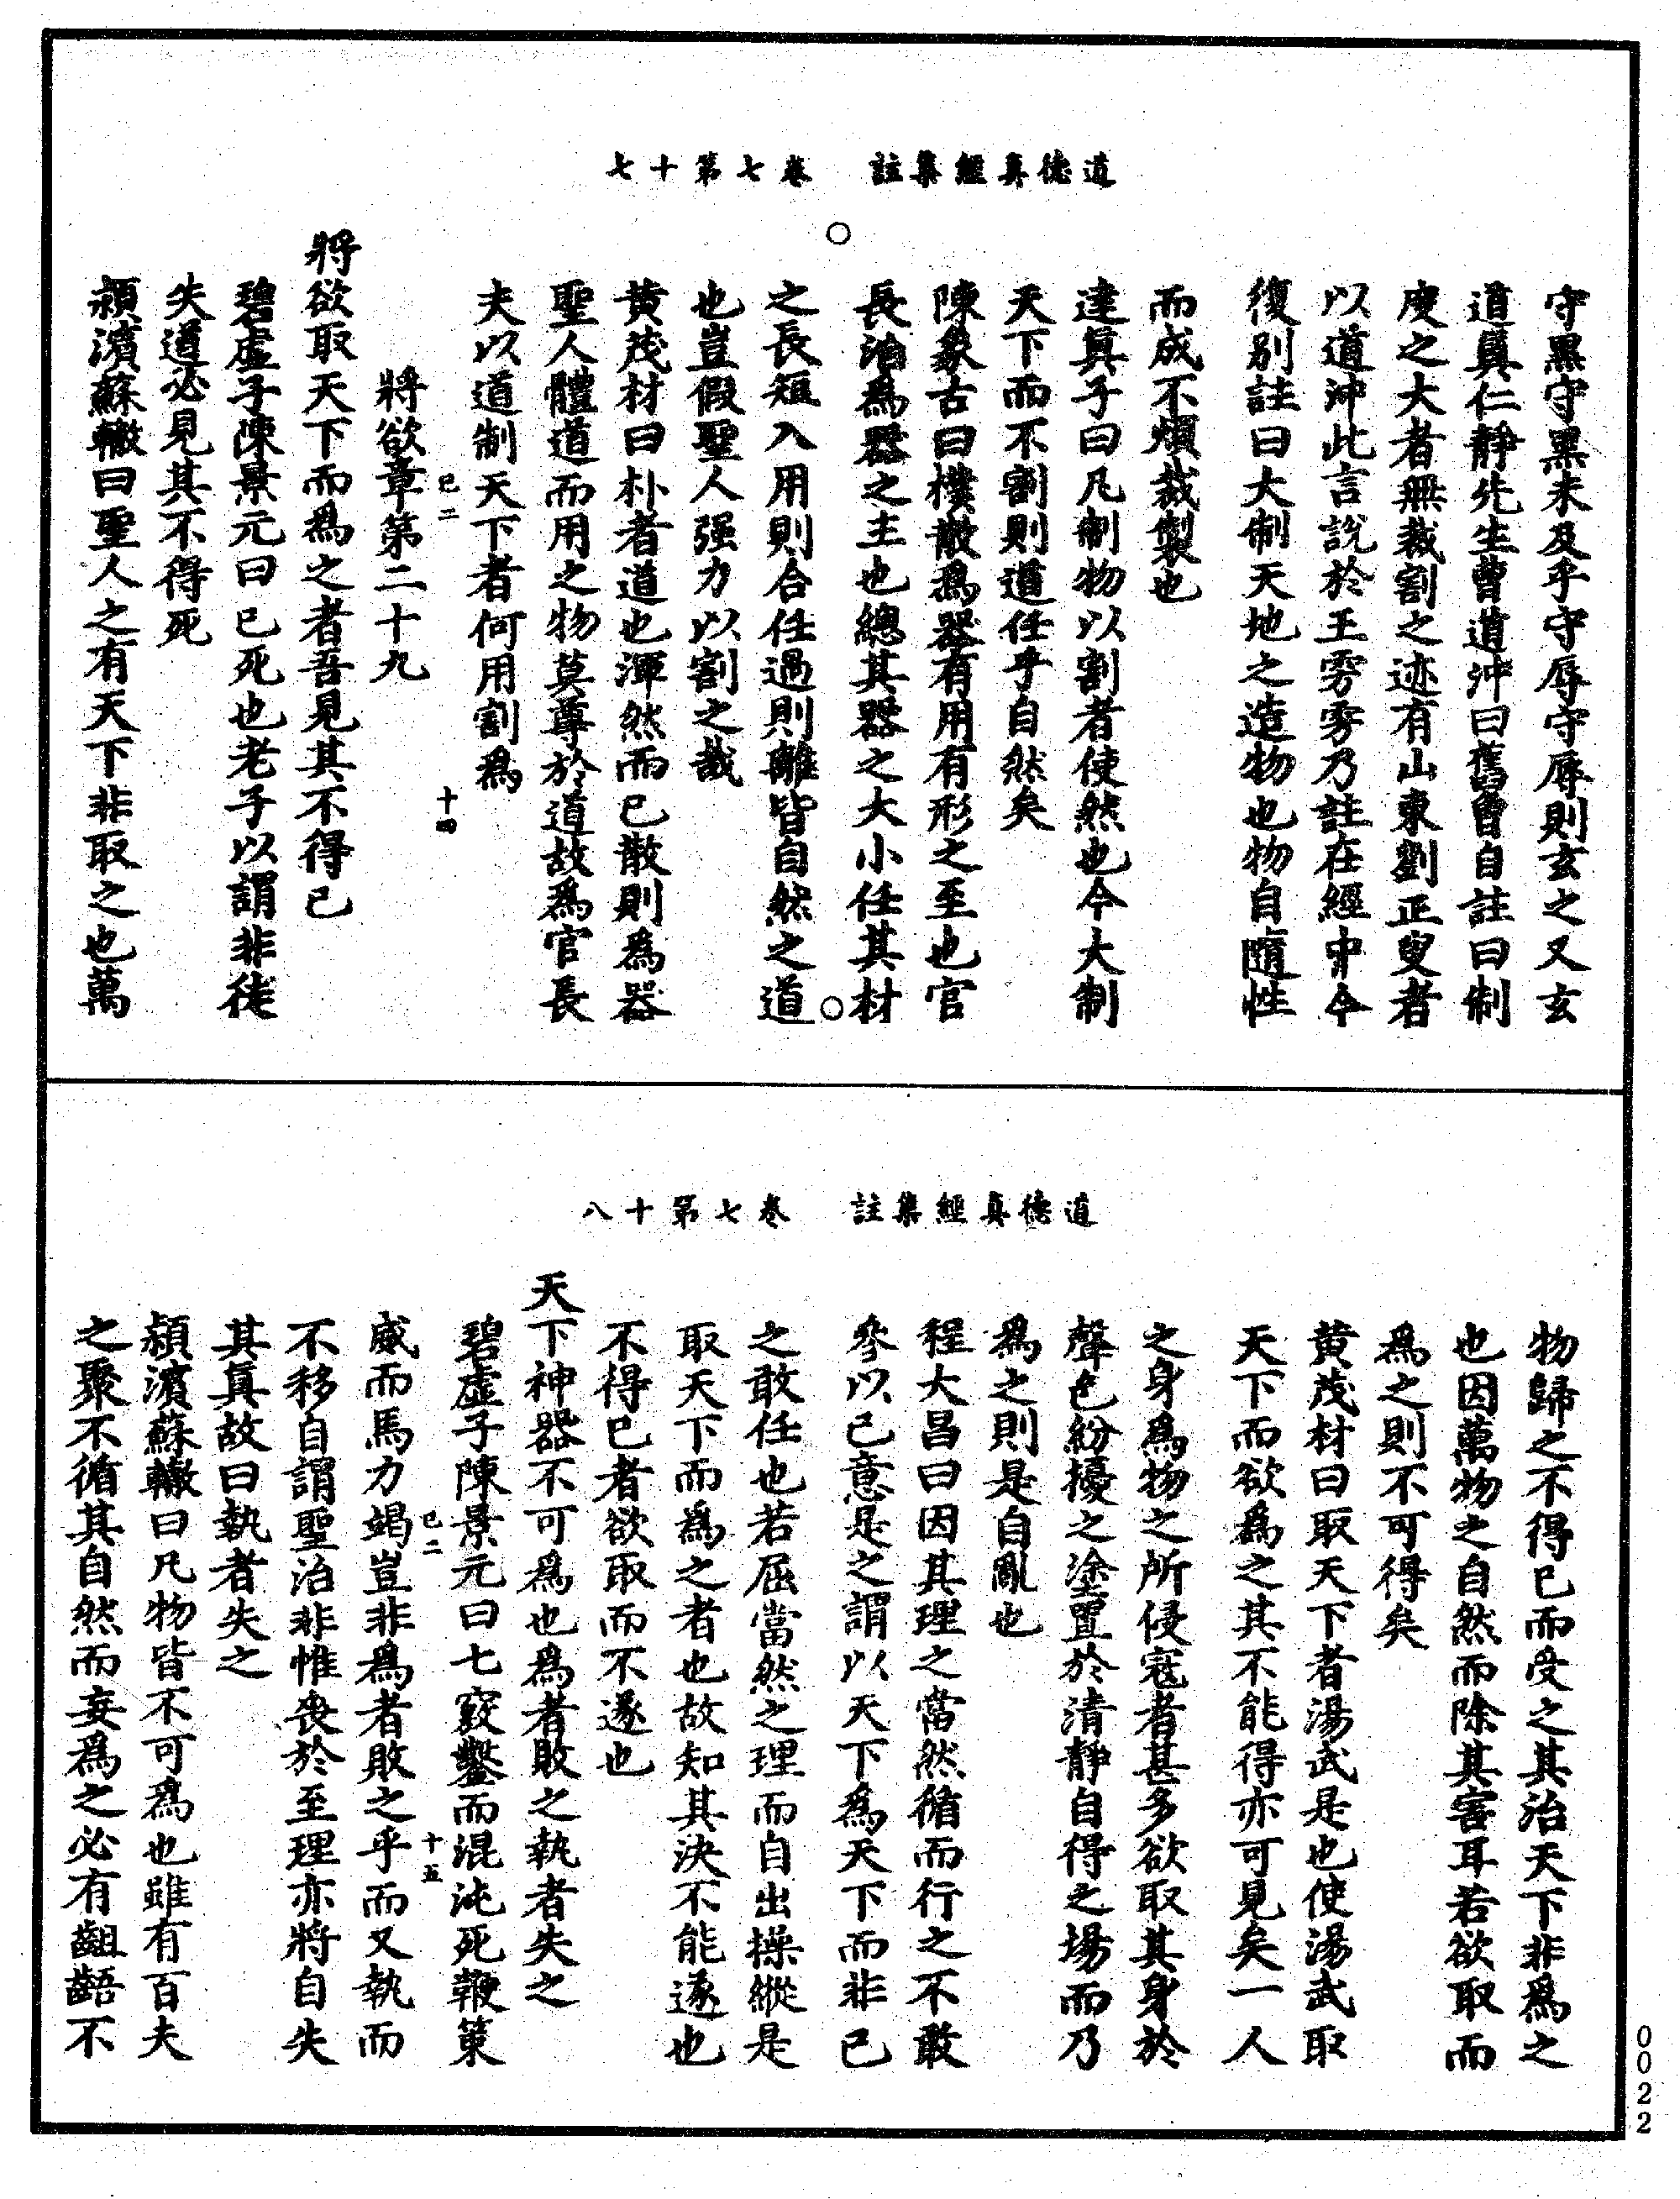 道德真經集註　卷七第十七
守黑守黑未及乎守辱守辱則玄之又玄
道真仁靜先生曹道沖曰舊魯自註曰制
度之大者無裁割之迹有山東劉正叟者
以道沖此言說於王雱雱乃註在經中今
復別註曰大制天地之造物也物自隨性
而成不煩裁製也
達真子曰凡制物以割者使然也今大制
天下而不割則道任乎自然矣
陳象古曰樸散爲器有用有形之至也官
長治爲器之主也總其器之大小任其材
之長短入用則合任過則離皆自然之道
也豈假聖人强力以割之哉
黄茂材曰朴者道也渾然而已散則爲器
聖人體道而用之物莫尊於道故爲官長
夫以道制天下者何用割爲
已二　十四
將欲章第二十九
將欲取天下而爲之者吾見其不得已
碧虛子陳景元曰已死也老子以謂非徒
失道必見其不得死
潁濱蘇轍曰聖人之有天下非取之也萬
道德真經集註　卷七第十八
物歸之不得已而受之其治天下非爲之
也因萬物之自然而除其害耳若欲取而
爲之則不可得矣
黄茂材曰取天下者湯武是也使湯武取
天下而欲爲之其不能得亦可見矣一人
之身爲物之所侵寇者甚多欲取其身於
聲色紛擾之塗置於清靜自得之場而乃
爲之則是自亂也
程大昌曰因其理之當然循而行之不敢
參以已意是之謂以天下爲天下而非已
之敢任也若屈當然之理而自出操縱是
取天下而爲之者也故知其決不能遂也
不得已者欲取而不遂也
天下神器不可爲也爲者敗之執者失之
碧虛子陳景元曰七竅鑿而混沌死鞭策
已二　十五
威而馬力竭豈非爲者敗之乎而又執而
不移自謂聖治非惟喪於至理亦將自失
其真故曰執者失之
潁濱蘇轍曰凡物皆不可爲也雖有百夫
之聚不循其自然而妄爲之必有齟齬不
0022